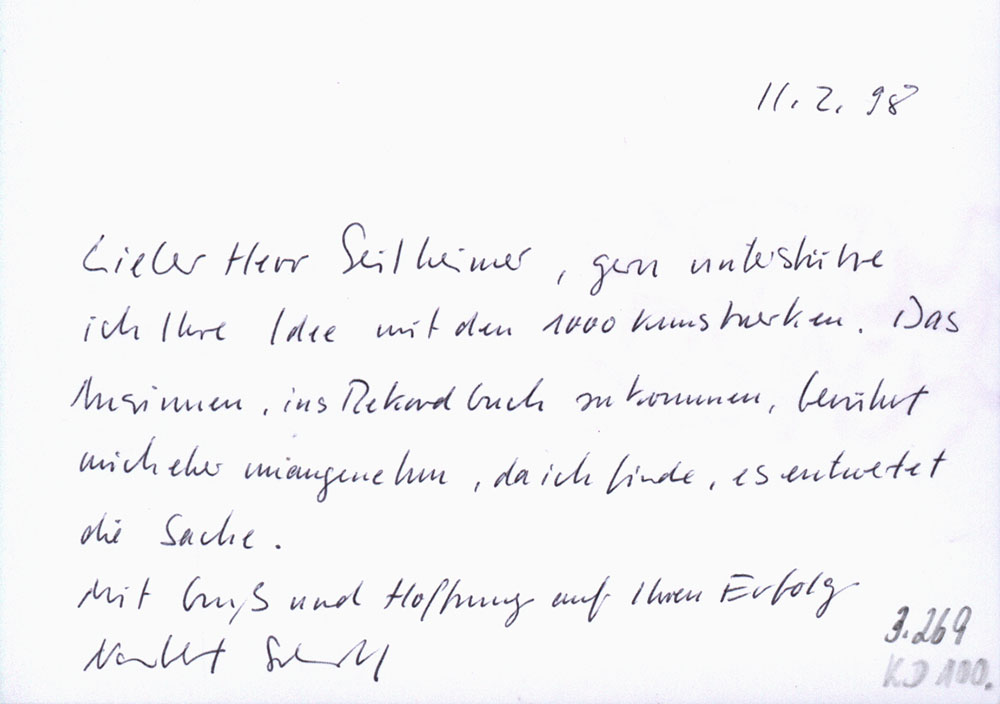 11. 2. 98
Lieber Herr Seilheimer, gern unterstütze
ich Ihre Idee mit den 1000 Kunstwerken. Das
Ansinnen, ins Rekordbuch zu kommen, berührt
mich eher unangenehm, da ich finde, es entwertet
die Sache.
Mit Gruß und Hoffnung auf Ihren Erfolg
3.269
K.D 100.